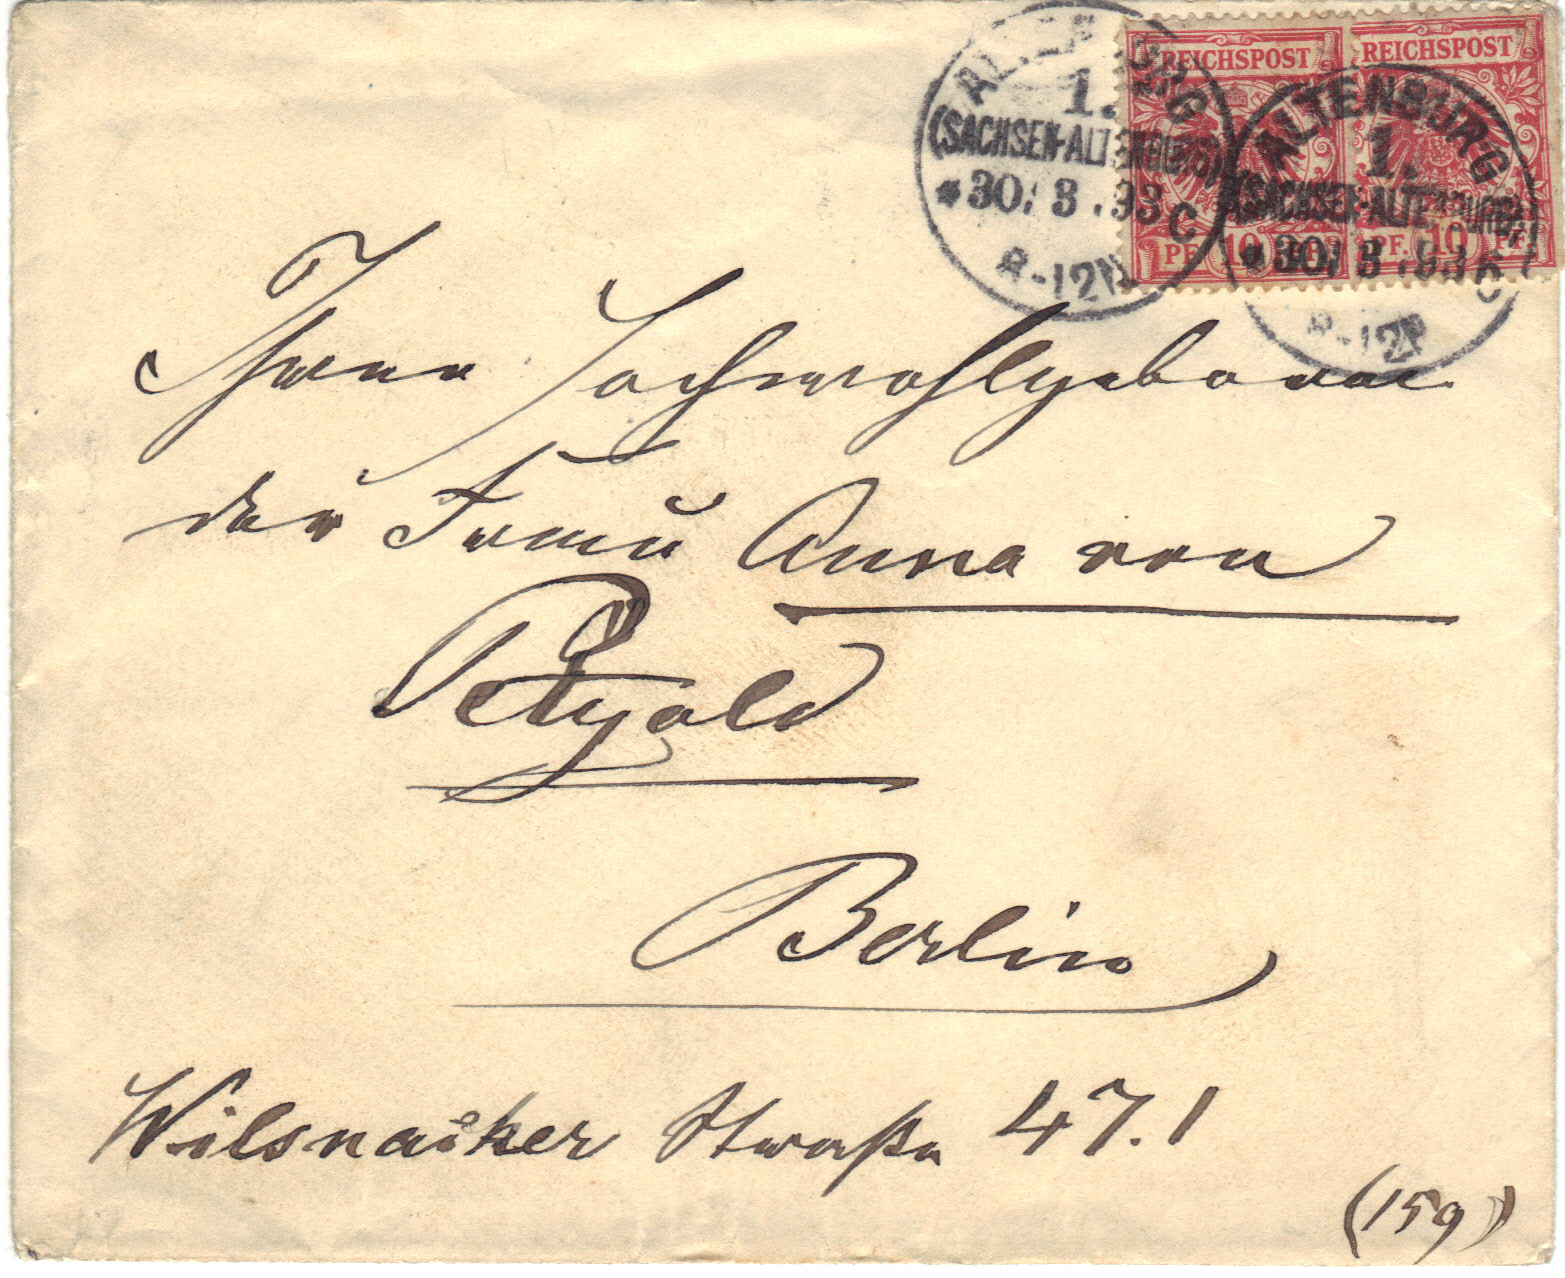 REICHSPOST REICHSPOST
ALTENBURG
1.
(SACHSEN-ALTENBURG)
*30/3.93 C
8-12N
ALTENBURG
1.
(SACHSEN-ALTENBURG)
*30/3.93
8-12N
PF. 10 PF. PF. 10 PF.
Ihrer Hochwohlgeboren
der Frau Anna von
Petzold
Berlin
Wilsnaker Straße 47.I
(15g)